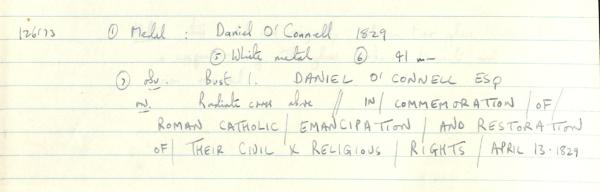 126/73 ① Medal : Daniel O'Connell 1829
⑤ White metal ⑥ 41 mm
⑦ obv. Bust l. DANIEL O'CONNELL ESQ
rev. Radiate cross above // IN / COMMEMORATION / OF /
ROMAN CATHOLIC / EMANCIPATION / AND RESTORATION
OF / THEIR CIVIL & RELIGIOUS / RIGHTS / APRIL 13·1829